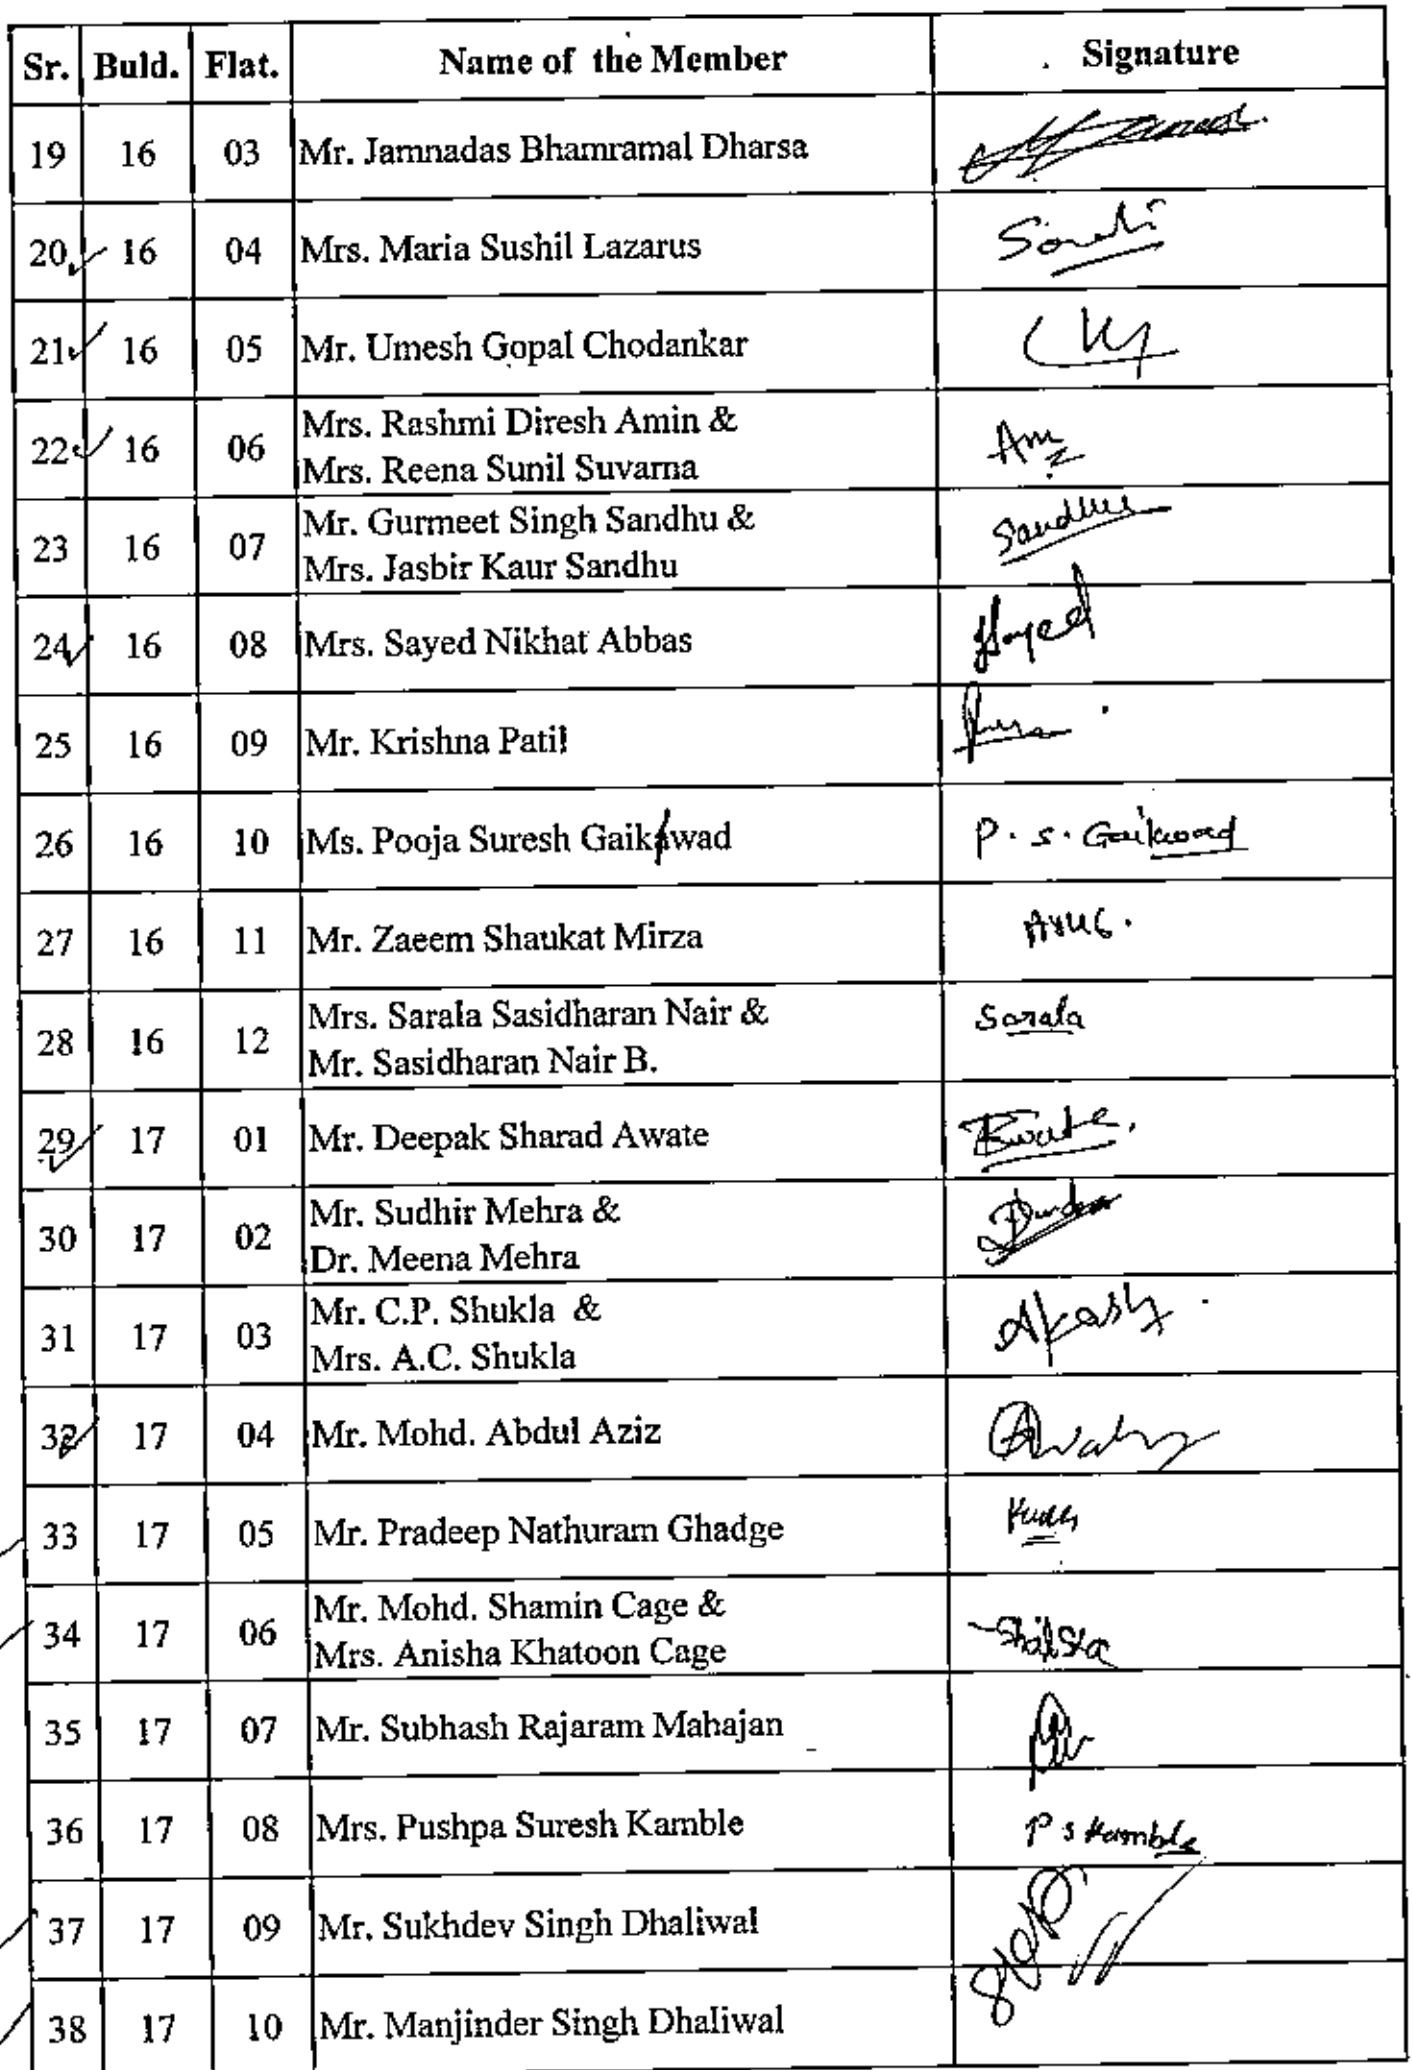 Sr. Buld. Flat. Name of the Member Signature
19 16 03 Mr. Jamnadas Bhamramal Dharsa
20 16 04 Mrs. Maria Sushil Lazarus
21 16 05 Mr. Umesh Gopal Chodankar
22 16 06 Mrs. Rashmi Diresh Amin &
Mrs. Reena Sunil Suvarna
23 16 07 Mr. Gurmeet Singh Sandhu & Sandhu
Mrs. Jasbir Kaur Sandhu
24 16 08 Mrs. Sayed Nikhat Abbas Sayed
25 16 09 Mr. Krishna Patil
26 16 10 Ms. Pooja Suresh Gaikawad P. S. Gaikwad
27 16 11 Mr. Zaeem Shaukat Mirza
28 16 12 Mrs. Sarala Sasidharan Nair & Sarala
Mr. Sasidharan Nair B.
29 17 01 Mr. Deepak Sharad Awate
30 17 02 Mr. Sudhir Mehra &
Dr. Meena Mehra
31 17 03 Mr. C.P. Shukla & Akash
Mrs. A.C. Shukla
32 17 04 Mr. Mohd. Abdul Aziz
33 17 05 Mr. Pradeep Nathuram Ghadge
34 17 06 Mr. Mohd. Shamin Cage &
Mrs. Anisha Khatoon Cage
35 17 07 Mr. Subhash Rajaram Mahajan
36 17 08 Mrs. Pushpa Suresh Kamble P S Kamble
37 17 09 Mr. Sukhdev Singh Dhaliwal
38 17 10 Mr. Manjinder Singh Dhaliwal